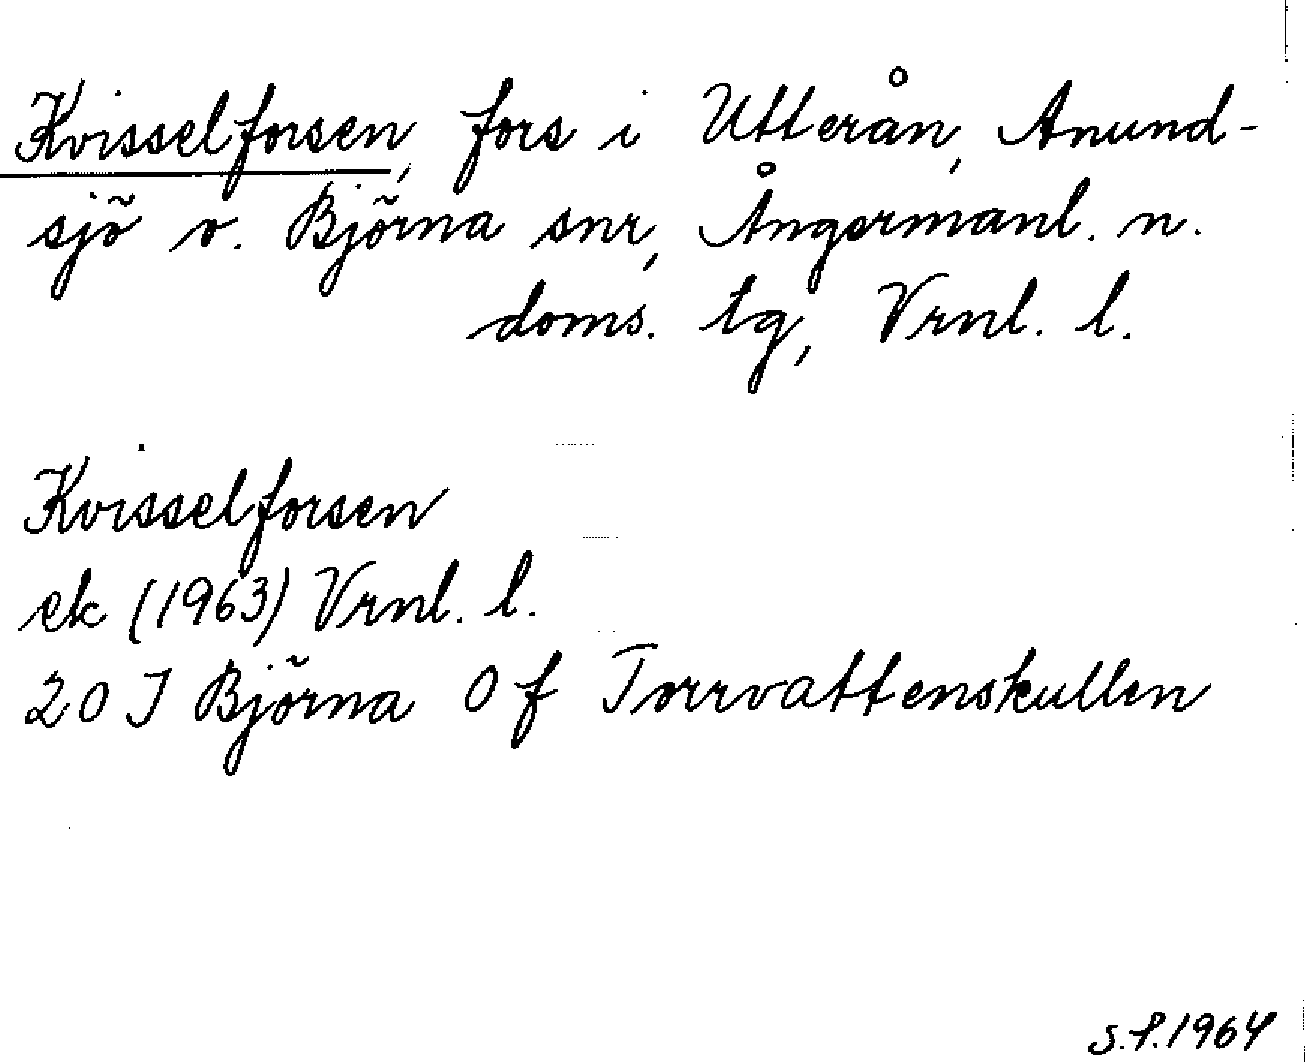 Kvisselforsen, fors i Utterån, Anund-
sjö o. Björna snr, Ångermanl. n.
doms. tg, Vrnl. l.
Kvisselforsen
ek (1963) Vrnl. l.
20 J Björna 0 f Torrvattenskullen
S.P. 1964